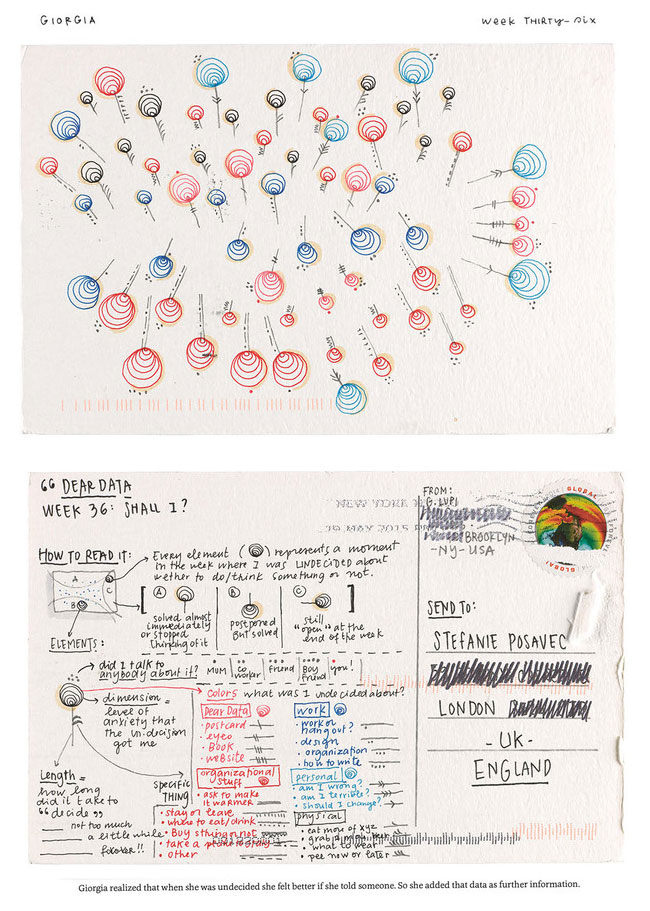 GIORGIA
WEEK THIRTY-SIX
DEAR DATA
WEEK 36: SHALL I?
HOW TO READ IT:
Every element ( ) represents a moment
in the week where I was UNDECIDED about
wether to do/think something or not.
A
B
C
A
B
C
solved almost
immediately
or stopped
thinking of it
postponed
But solved
still
"open" at the
end of the week
ELEMENTS:
did I talk to
anybody about it?
MUM
CO
WORKER
friend
BOY
friend
you!
dimension =
level of
anxiety that
the un-decision
got me
Length =
how long
did it take to
"decide"
not too much
a little while
forever!!
SPECIFIC
THING
Colors what was I undecided about?
Dear Data
postcard
Book
website
work
work or
hang out?
design
organization
how to write
organizational
stuff
ask to make
it warmer
stay or leave
where to eat/drink
Buy sthing or not
other
personal
am I wrong?
am I terrible?
should I change?
physical
eat more of xyz
what to wear
pee now or later
NEW YORK
19 MAY 2015
FROM:
G. LUPI
BROOKLYN
-NY-USA
GLOBAL
GLOBAL
FOREVER
SEND TO:
STEFANIE POSAVEC
LONDON
-UK-
ENGLAND
Giorgia realized that when she was undecided she felt better if she told someone. So she added that data as further information.